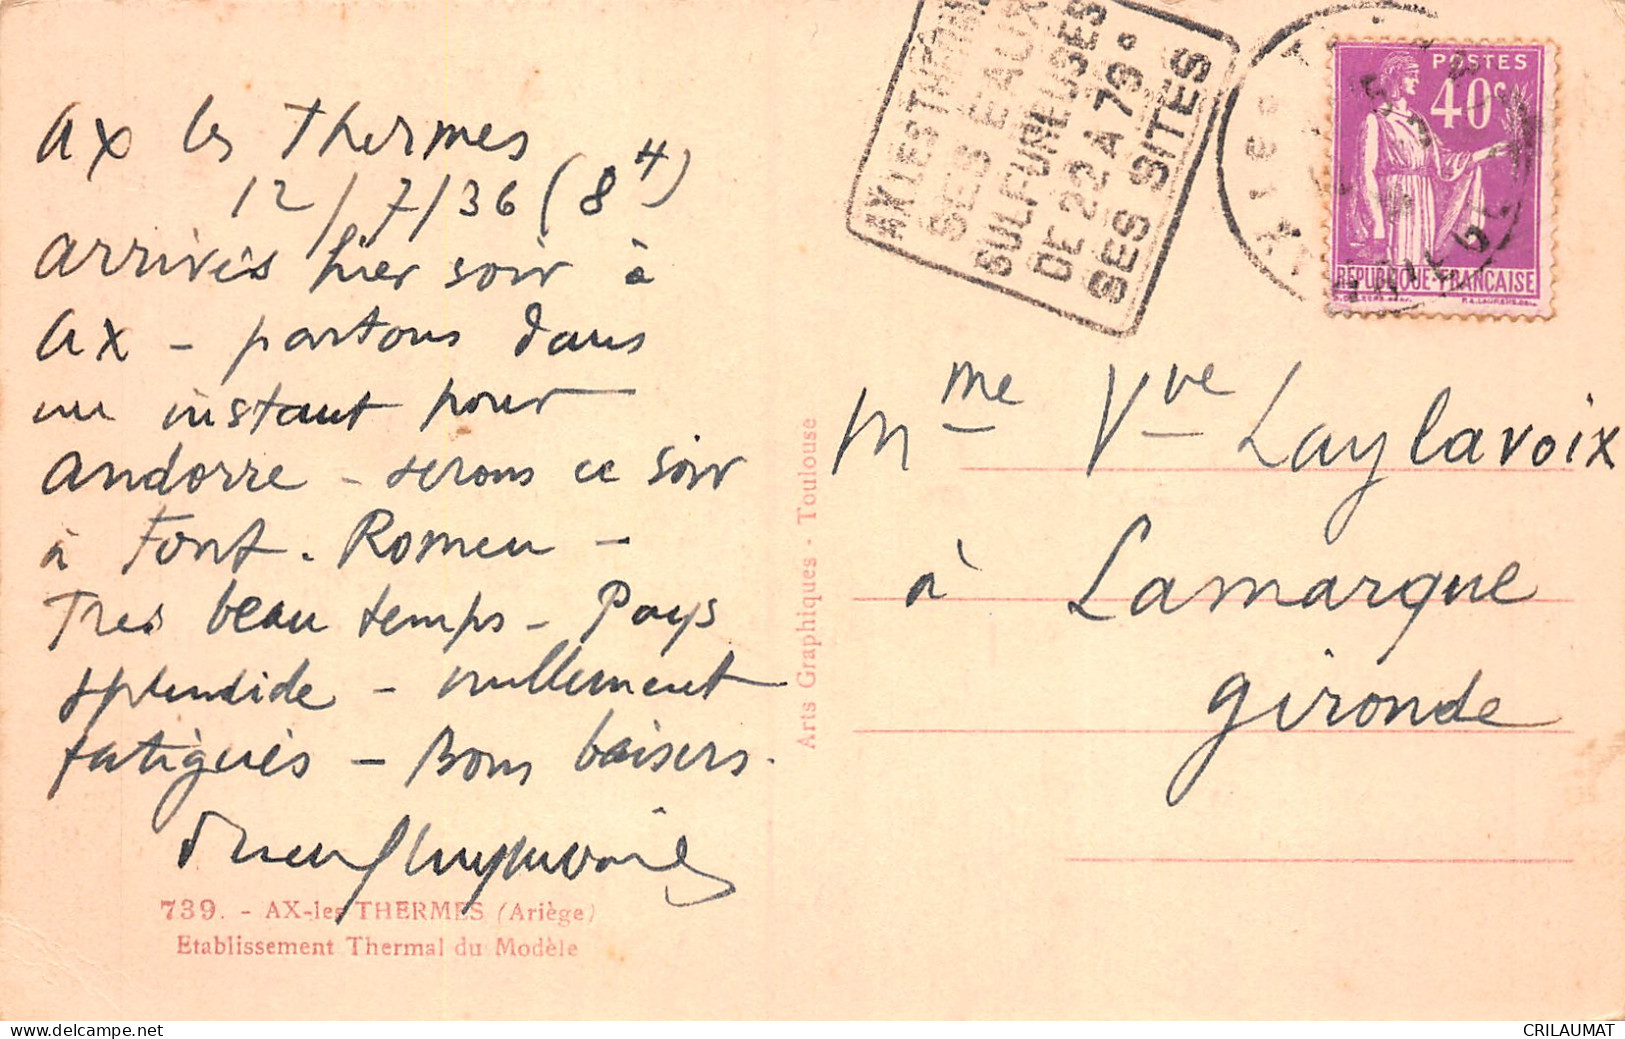 Ax les Thermes
12/7/36 (8H)
arrivés hier soir à
Ax - partons dans
un instant pour
Andorre - serons ce soir
à Font-Romeu -
Tres beau temps - Pays
splendide - nullement
fatigués - Bons baisers.
739. - AX-les THERMES (Ariège)
Etablissement Thermal du Modèle
Arts Graphiques - Toulouse
AX LES THERMES
SES EAUX
SULFUREUSES
DE 22 A 79°
SES SITES
POSTES
40c
REPUBLIQUE-FRANÇAISE
Mme Vve Laylavoix
à Lamarque
Gironde
CRILAUMAT